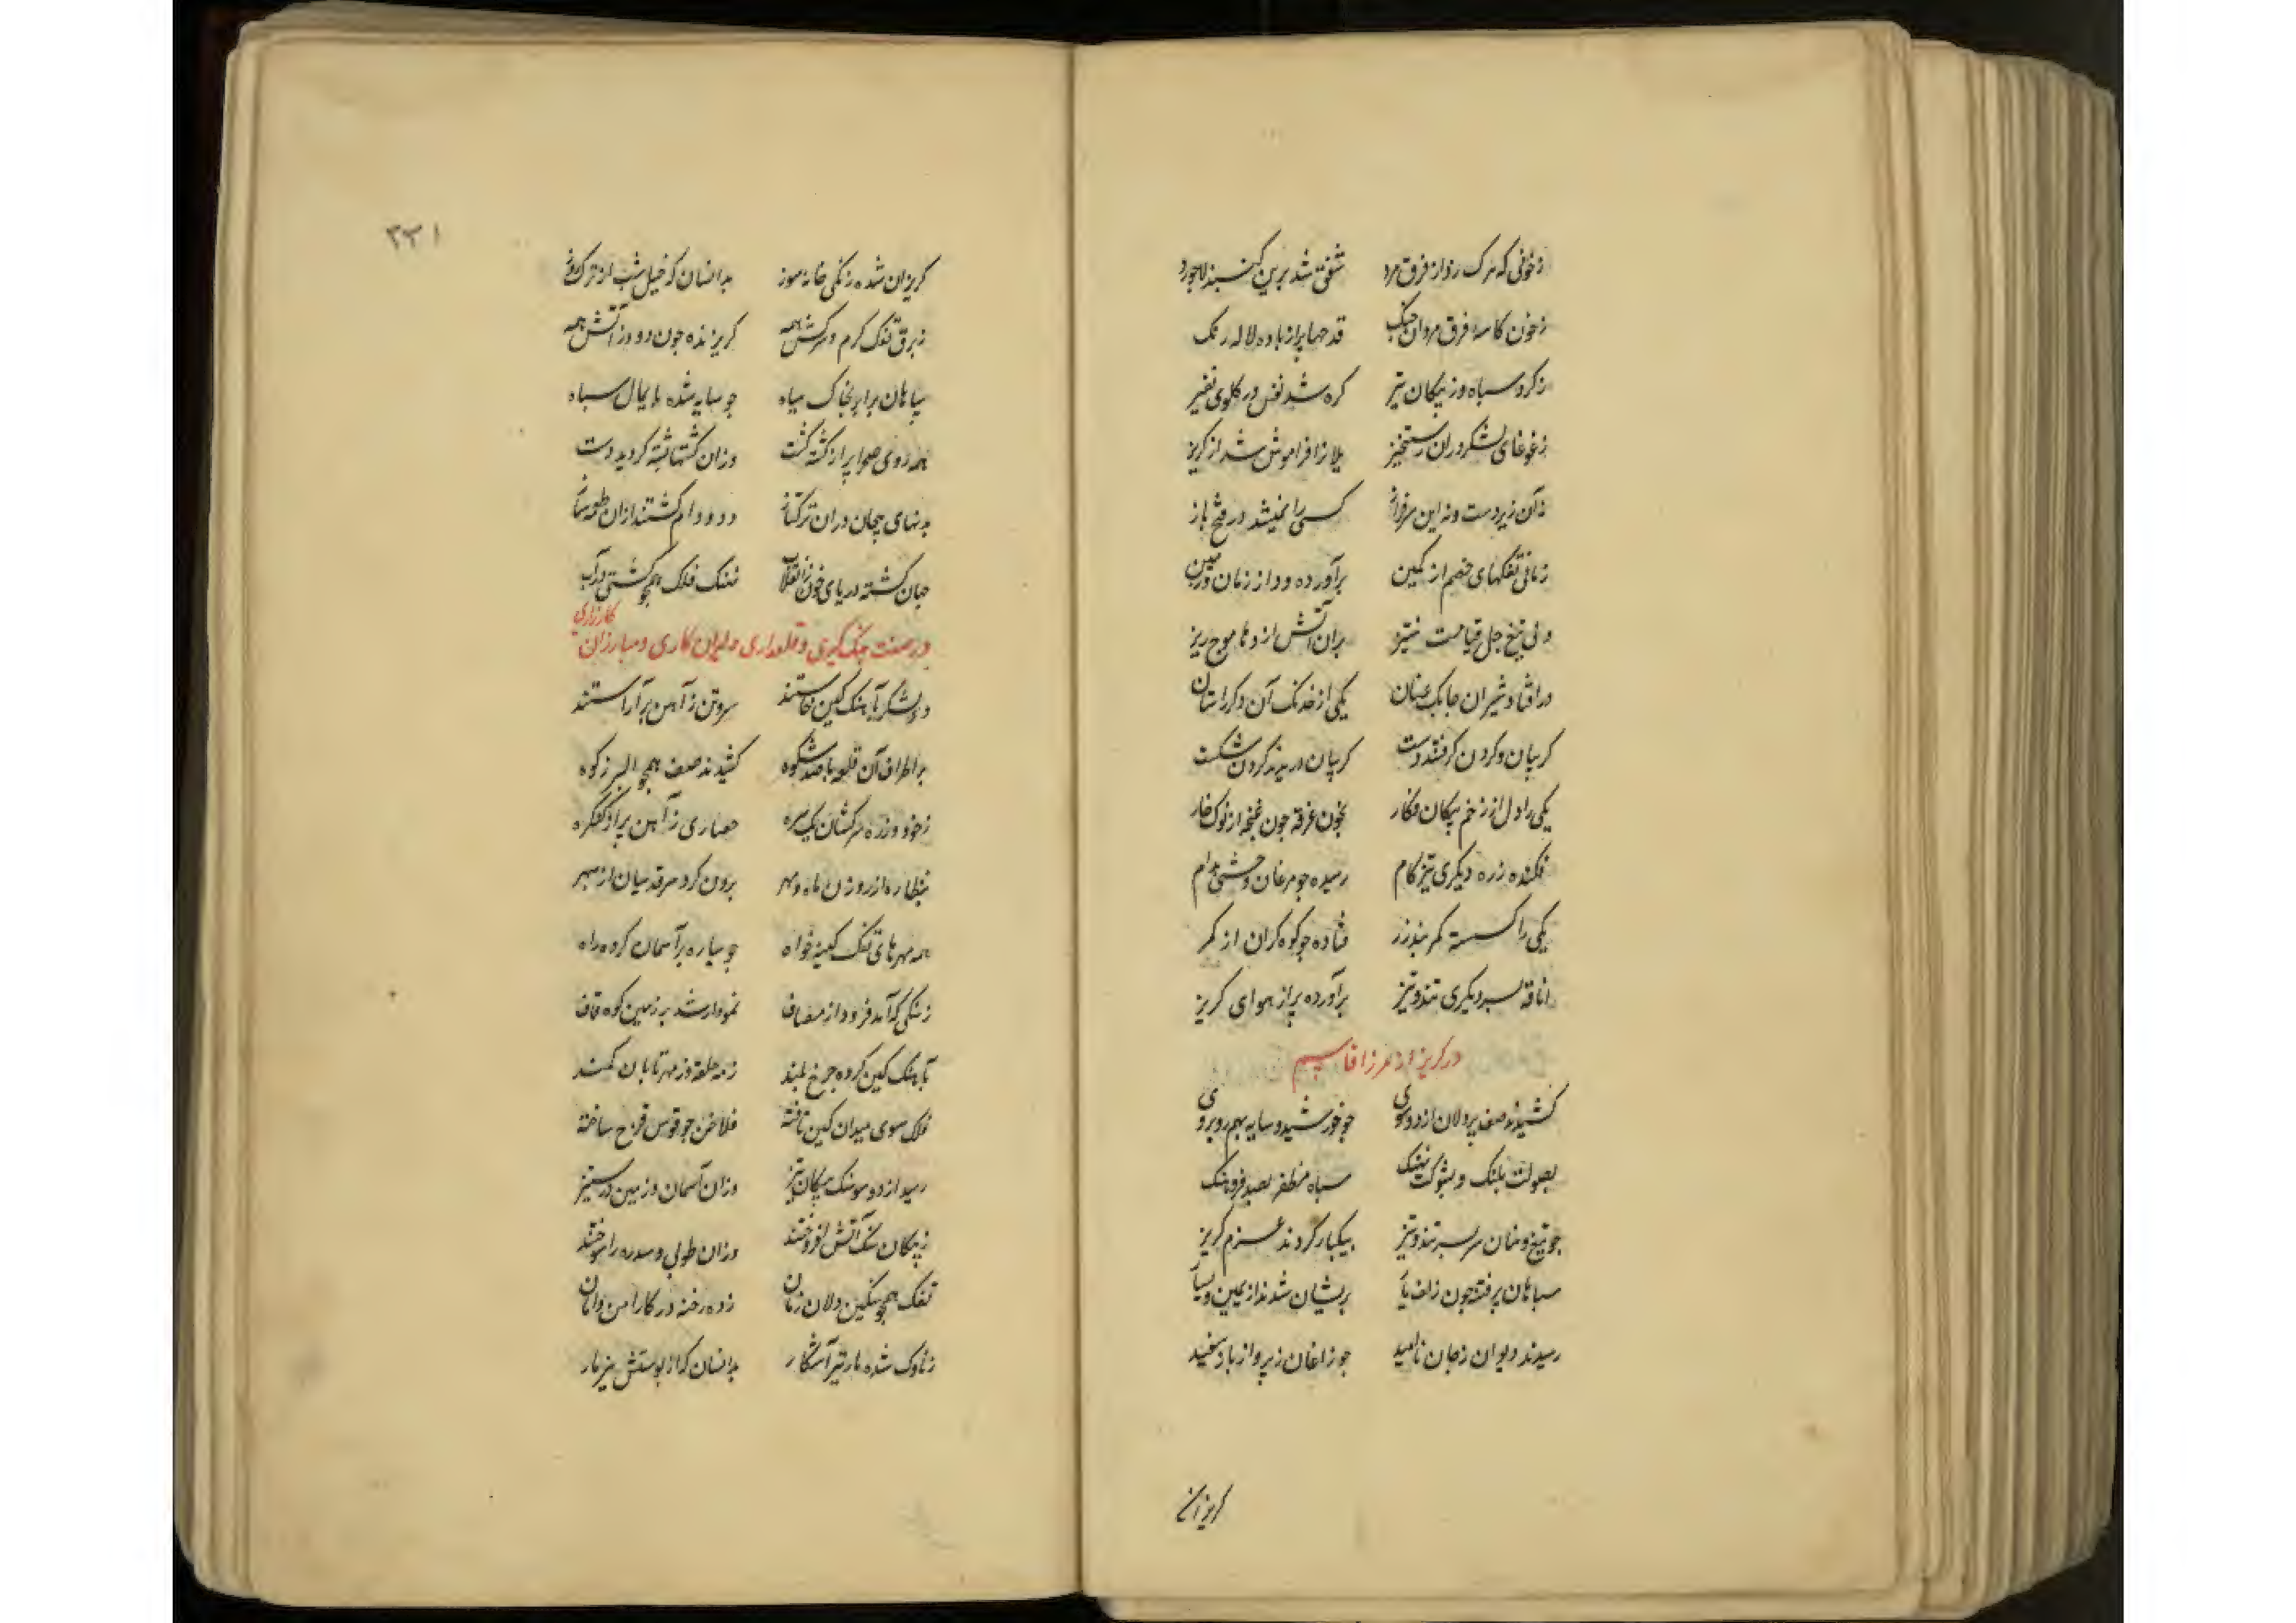 زخونی که مرک زد از فرق مرد شفق شد برین کنبد لاجورد
زخون کاسهٔ فرق مردان جنک قدحها پر از باده لاله رنک
زکرد سپاه وز پیکان تیز کره شد نفس در کلوی نفیر
زغوغای لشکر دران رستخیز یلانرا فراموش شد از کریز
نه آن زیردست و نه این سرفراز کسی را نمیشد در فتح باز
تفکهای خصم از کمین برآورده دود از زمان و زمین
ولی تیغ جل قیامت ستیز بران آتش اژدها موج ریز
در افتاد شیران چابک عنان یکی از خدنک آن دکر از سنان
کریبان و کردن کرفتند دست کریبان دریدند کردن شکست
یکی را دل از زخم پیکان فکار بخون غرقه چون غنچه از نوک خار
فکنده زره دیکری تیز کام رسیده چو مرغان وحشی بدام
یکی را کسسته کمربند زر فتاده چو کوه کران از کمر
اتاقه بسر دیکری تند و تیز برآورده پر از هوای کریز
در کریز از مرزا قاسم
کشیدند صف پردلان از دو سوی چو خورشید و سایه بهم روبروی
بصولت پلنک و بشوکت نهنک سپاه مظفر بصد فر و هنک
چو تیغ و سنان سربسر تند و تیز بیکبار کردند عزم کریز
سپاهان پر فتنه چون زلف یار پریشان شدند از یمین و یسار
رسیدند دیوان زجان ناامید چو زاغان زپرواز باز سفید
کریزان
۲۲۱
کریزان شده زنکی خانه سوز بدانسان که خیل شب از ترک روز
زبرق تفک کرم و سرکش همه کریزنده چون دود از آتش همه
سپاهان برابر بخاک سیاه چو سایه شده پایمال سپاه
همه روی صحرا پر از کشته کشت وزان کشتها پشته کردید دشت
بدنهای بیجان دران ترکتاز دد و دام کشتند ازان طعمه ساز
چنان کشته دریای خون زانقلاب نهنک فلک همچو کشتی در آب
در صفت جنک کیری و قلعه داری دلیران کاری و مبارزان کارزاری
دو لشکر بآهنک کین خاستند سر و تن زآهن برآراستند
بر اطراف آن قلعه با صد شکوه کشیدند صف همچو البرز کوه
زخود و زره سرکشان یکسره حصاری زآهن پر از کنکره
بنظاره از روزن ماه و مهر برون کرد سر قدسیان از سپهر
همه مهرهای تفک کینه خواه چو سیاره بر آسمان کرده راه
زسنکی که آمد فرود از مصاف نمودار شد بر زمین کوه قاف
بآهنک کین کرده چرخ بلند زمه حلقه وز مهر تابان کمند
فلک سوی میدان کین تاخته فلاخن چو قوس قزح ساخته
رسید از دو سو سنک و پیکان تیز وزان آسمان و زمین در ستیز
زپیکان سنک آتش افروختند وزان طوبی و سدره را سوختند
تفک همچو سنکین دلان زمان زده رخنه در کار امن و امان
زناوک شده مار تیر آشکار بدانسان که از پوستش نیزه‌دار